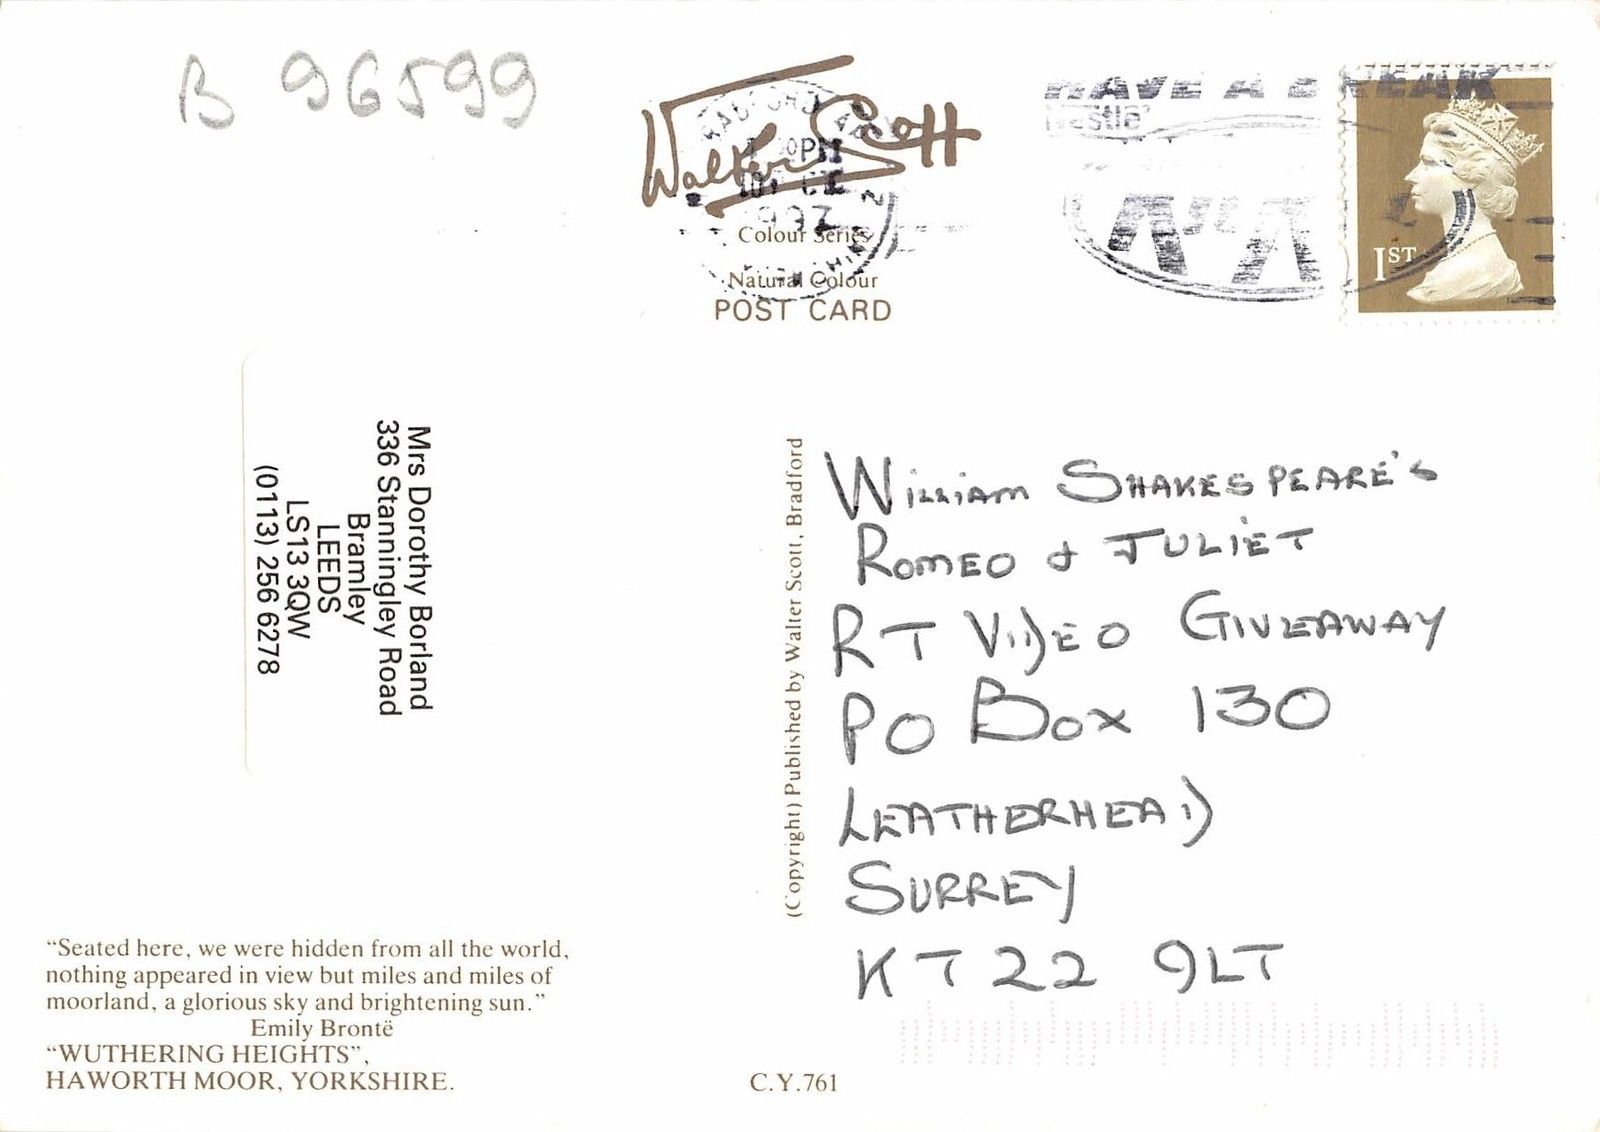 B 96599
Walter Scott
Colour Series
Natural Colour
POST CARD
1997
HAVE A BREAK
Nestlé
1ST
Mrs Dorothy Borland
336 Stanningley Road
Bramley
LEEDS
LS13 3QW
(0113) 256 6278
(Copyright) Published by Walter Scott, Bradford
WILLIAM SHAKESPEARE'S
ROMEO & JULIET
RT VIDEO GIVEAWAY
PO BOX 130
LEATHERHEAD
SURREY
KT22 9LT
"Seated here, we were hidden from all the world,
nothing appeared in view but miles and miles of
moorland, a glorious sky and brightening sun."
Emily Brontë
"WUTHERING HEIGHTS",
HAWORTH MOOR, YORKSHIRE.
C.Y.761